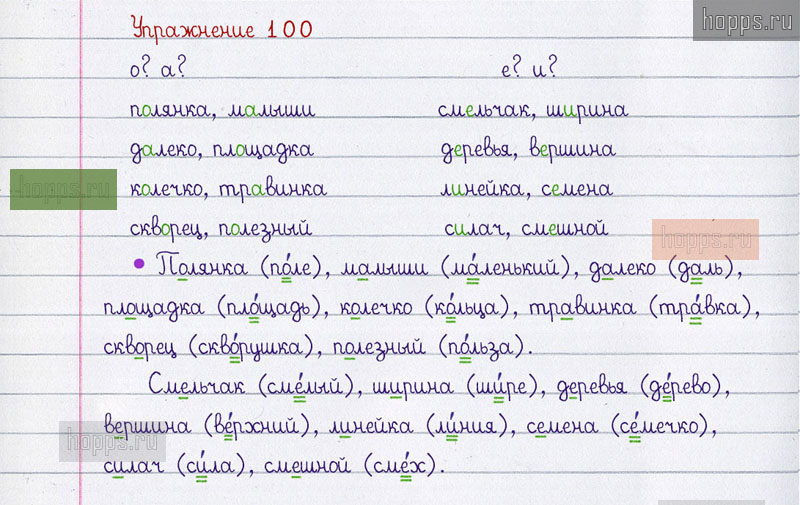 hopps.ru
Упражнение 100
о? а? е? и?
полянка, малыши смельчак, ширина
далеко, площадка деревья, вершина
hopps.ru
колечко, травинка линейка, семена
скворец, полезный силач, смешной
hopps.ru
• Полянка (по́ле), малыши (ма́ленький), далеко (даль),
площадка (пло́щадь), колечко (ко́льца), травинка (тра́вка),
скворец (скво́рушка), полезный (по́льза).
Смельчак (сме́лый), ширина (ши́ре), деревья (де́рево),
вершина (ве́рхний), линейка (ли́ния), семена (се́мечко),
hopps.ru
силач (си́ла), смешной (сме́х).